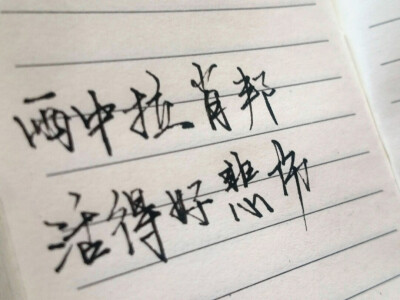 雨中拉肖邦
活得好悲伤